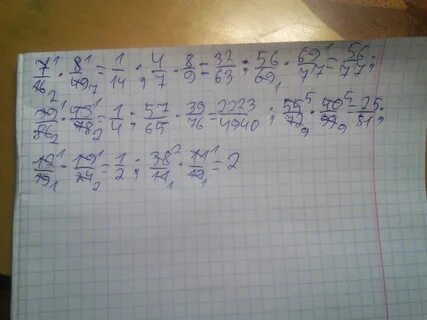 7/16 · 8/49 = 1/14; 4/7 · 8/9 = 32/63; 56/69 · 69/77 = 56/77;
39/86 · 43/78 = 1/4; 57/65 · 39/76 = 2223/4940; 55/72 · 40/99 = 25/81;
12/19 · 19/24 = 1/2; 38/11 · 11/19 = 2